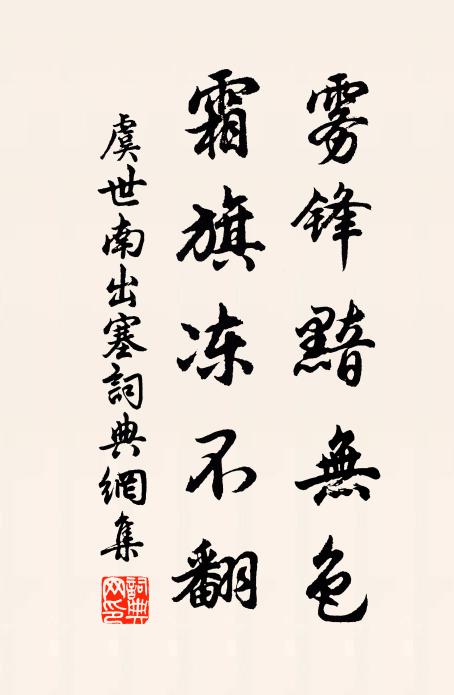 雾锋黯無色
霜旗冻不翻
虞世南出塞詞典網集
詞典网印